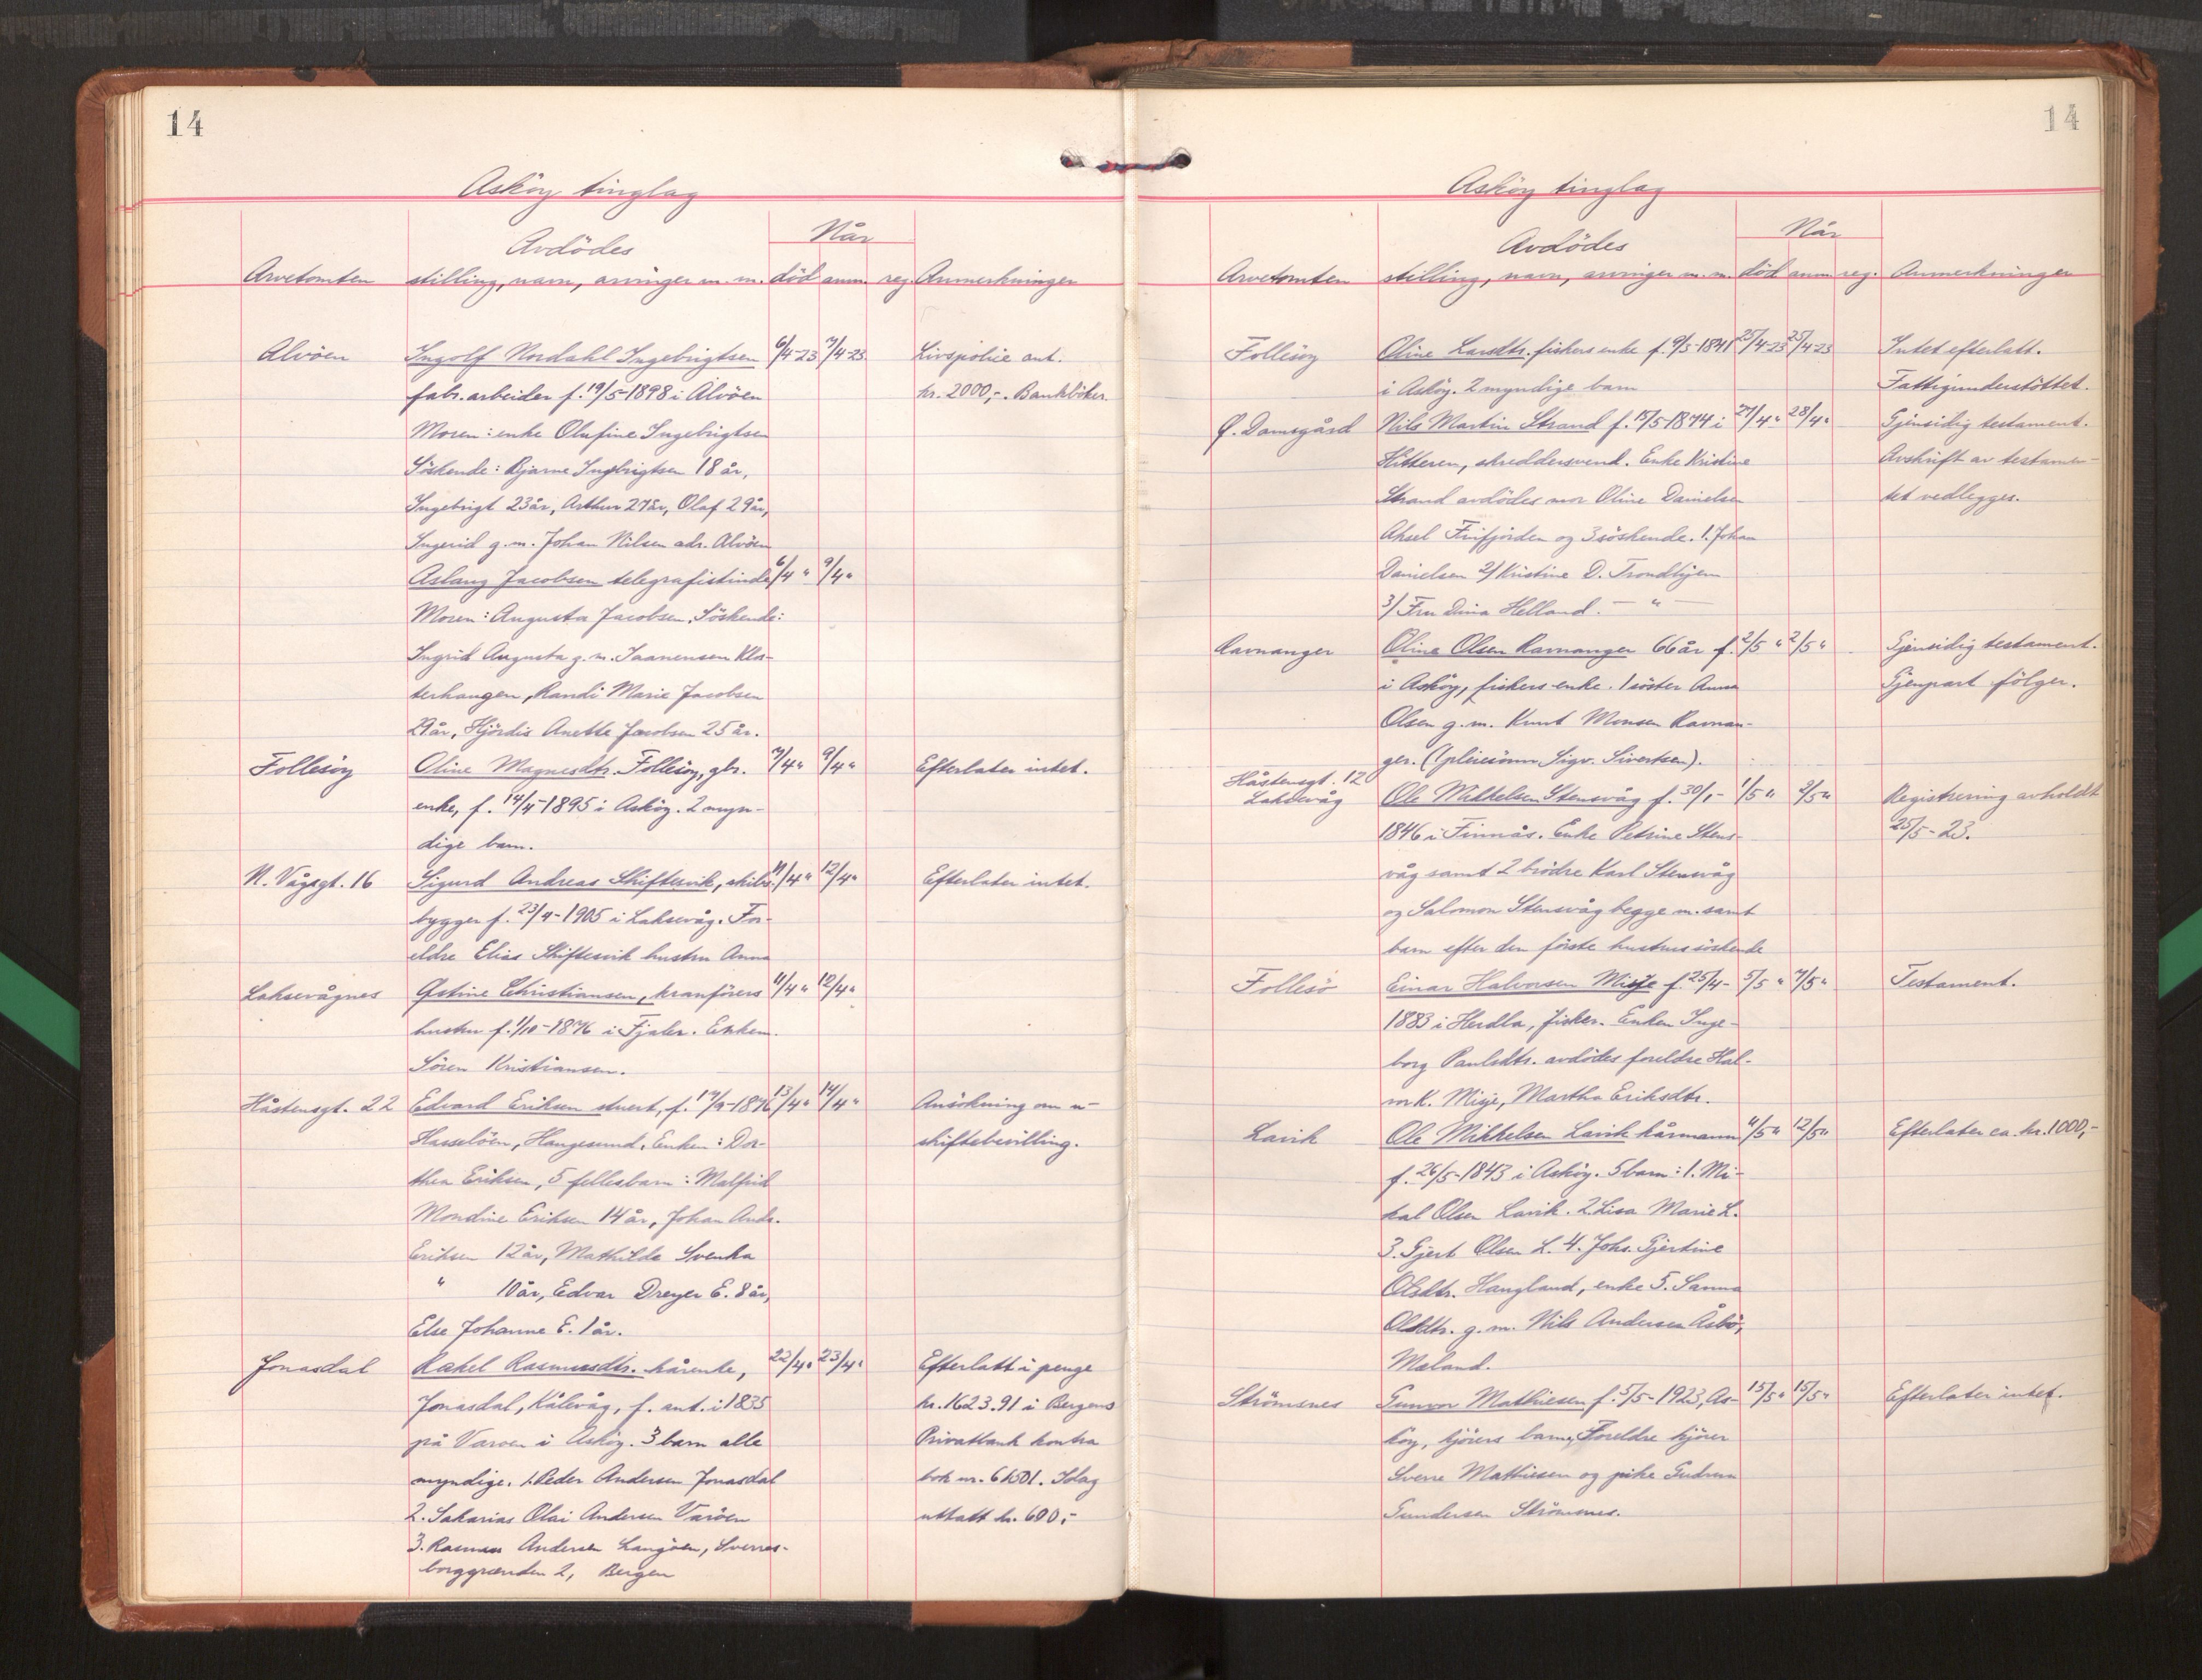 14
Asköy tinglag
Når
Avdödes
Arvetomten stilling, navn, arvinger m. m. död anm. reg. Anmerkninger
Alvöen Ingolf Nordahl Ingebrigtsen 6/4-23 7/4-23 Livspolice ant.
fabr. arbeider f. 19/5-1898 i Alvöen kr. 2000,-. Bankböker
Moren: enke Olufine Ingebrigtsen
Söskende: Bjarne Ingebrigtsen 18 år,
Ingebrigt 23 år, Arthur 27 år, Olaf 29 år,
Ingerid g.m. Johan Nilsen adr. Alvöen
Aslaug Jacobsen telegrafistinde 6/4 " 9/4 "
Moren: Augusta Jacobsen. Söskende:
Ingrid Augusta g.m. Isanensen Klos-
terhaugen, Randi Marie Jacobsen
29 år, Hjördis Anette Jacobsen 25 år.
Follesöy Oline Magnesdtr. Follesöy, gbr. 7/4 " 9/4 " Efterlater intet.
enke, f. 14/4-1895 i Asköy. 2 myn-
dige barn.
N. Vågsgt. 16 Sigurd Andreas Skiftesvik, skibs- 11/4 " 12/4 " Efterlater intet.
bygger f. 23/4-1905 i Laksevåg. For-
eldre Elias Skiftesvik hustru Anna
Laksevågnes Østine Christiansen, kranförers 11/4 " 12/4 "
hustru f. 1/10-1876 i Fjaler. Enkem.
Sören Kristiansen.
Håstensgt. 22 Edvard Eriksen stuert, f. 17/9-1876 13/4 " 14/4 " Ansökning om u-
Hasselöen, Haugesund. Enken: Dor- skiftebevilling.
thea Eriksen, 5 fellesbarn: Malfrid
Mondine Eriksen 14 år, Johan Andr.
Eriksen 12 år, Mathilde Svenka
" 10 år, Edvar Dreyer E. 8 år,
Else Johanne E. 1 år.
Jonasdal Rakel Rasmusdtr. kårenke, 22/4 " 23/4 " Efterlatt i penge
Jonasdal, Kålevåg, f. ant. i 1835 kr. 1623.91 i Bergens
på Varöen i Asköy. 3 barn alle Privatbank kontra
myndige. 1. Peder Andersen Jonasdal bok nr. 61501. Idag
2. Sakarias Olai Andersen Varöen uttatt kr. 600,-
3. Rasmus Andersen Langöen, Sverres-
borggrænden 2, Bergen
14
Asköy tinglag
Når
Avdödes
Arvetomten stilling, navn, arvinger m. m. död anm. reg. Anmerkninger
Follesöy Oline Larsdtr. fiskers enke f. 9/5-1841 25/4-23 25/4-23 Intet efterlatt.
i Asköy. 2 myndige barn Fattigunderstöttet.
Ø. Damsgård Nils Martin Strand f. 15/5 1874 i 27/4 " 28/4 " Gjensidig testament.
Hitteren, skreddersvend. Enke Kristine Avskrift av testamen-
Strand avdödes mor Oline Danielsen tet vedlegges.
Aksel Finfjorden og 3 söskende. 1. Johan
Danielsen 2/ Kristine D. Trondhjem
3/ Fru Dina Helland. — " —
Ravnanger Oline Olsen Ravnanger 66 år f. 2/5 " 2/5 " Gjensidig testament.
i Asköy, fiskers enke. 1 söster Anna Gjenpart fölger.
Olsen g.m. Knut Monsen Ravnan-
ger. (1 pleiesönn Sigv. Sivertsen).
Håstensgt. 12
Laksevåg Ole Mikkelsen Stensvåg f. 30/1- 1/5 " 2/5 " Registrering avholdt
1846 i Finnås. Enke Petrine Stens- 25/5-23.
våg samt 2 brödre Karl Stensvåg
og Salomon Stensvåg begge m. samt
barn efter den förste hustrus söskende
Follesö Einar Halvorsen Misje f. 25/4- 5/5 " 7/5 " Testament.
1883 i Herdla, fisker. Enken Inge-
borg Paulsdtr. avdödes foreldre Hal-
vor K. Misje, Martha Eriksdtr.
Lavik Ole Mikkelsen Lavik kårmann 11/5 " 12/5 " Efterlater ca. kr. 1000,-
f. 26/5-1843 i Asköy. 5 barn: 1. Mi-
kal Olsen Lavik. 2. Lisa Marie L.
3. Gjert Olsen L. 4. Johs. Gjertine
Olsdtr. Haugland, enke 5. Sanna
Olsdtr. g.m. Nils Andersen Åsbö,
Mæland.
Strömsnes Gunvor Mathiesen f. 5/5-1923, As- 15/5 " 15/5 " Efterlater intet.
köy, kjörers barn. Foreldre kjörer
Sverre Mathiesen og pike Gudrun
Gundersen Strömsnes.